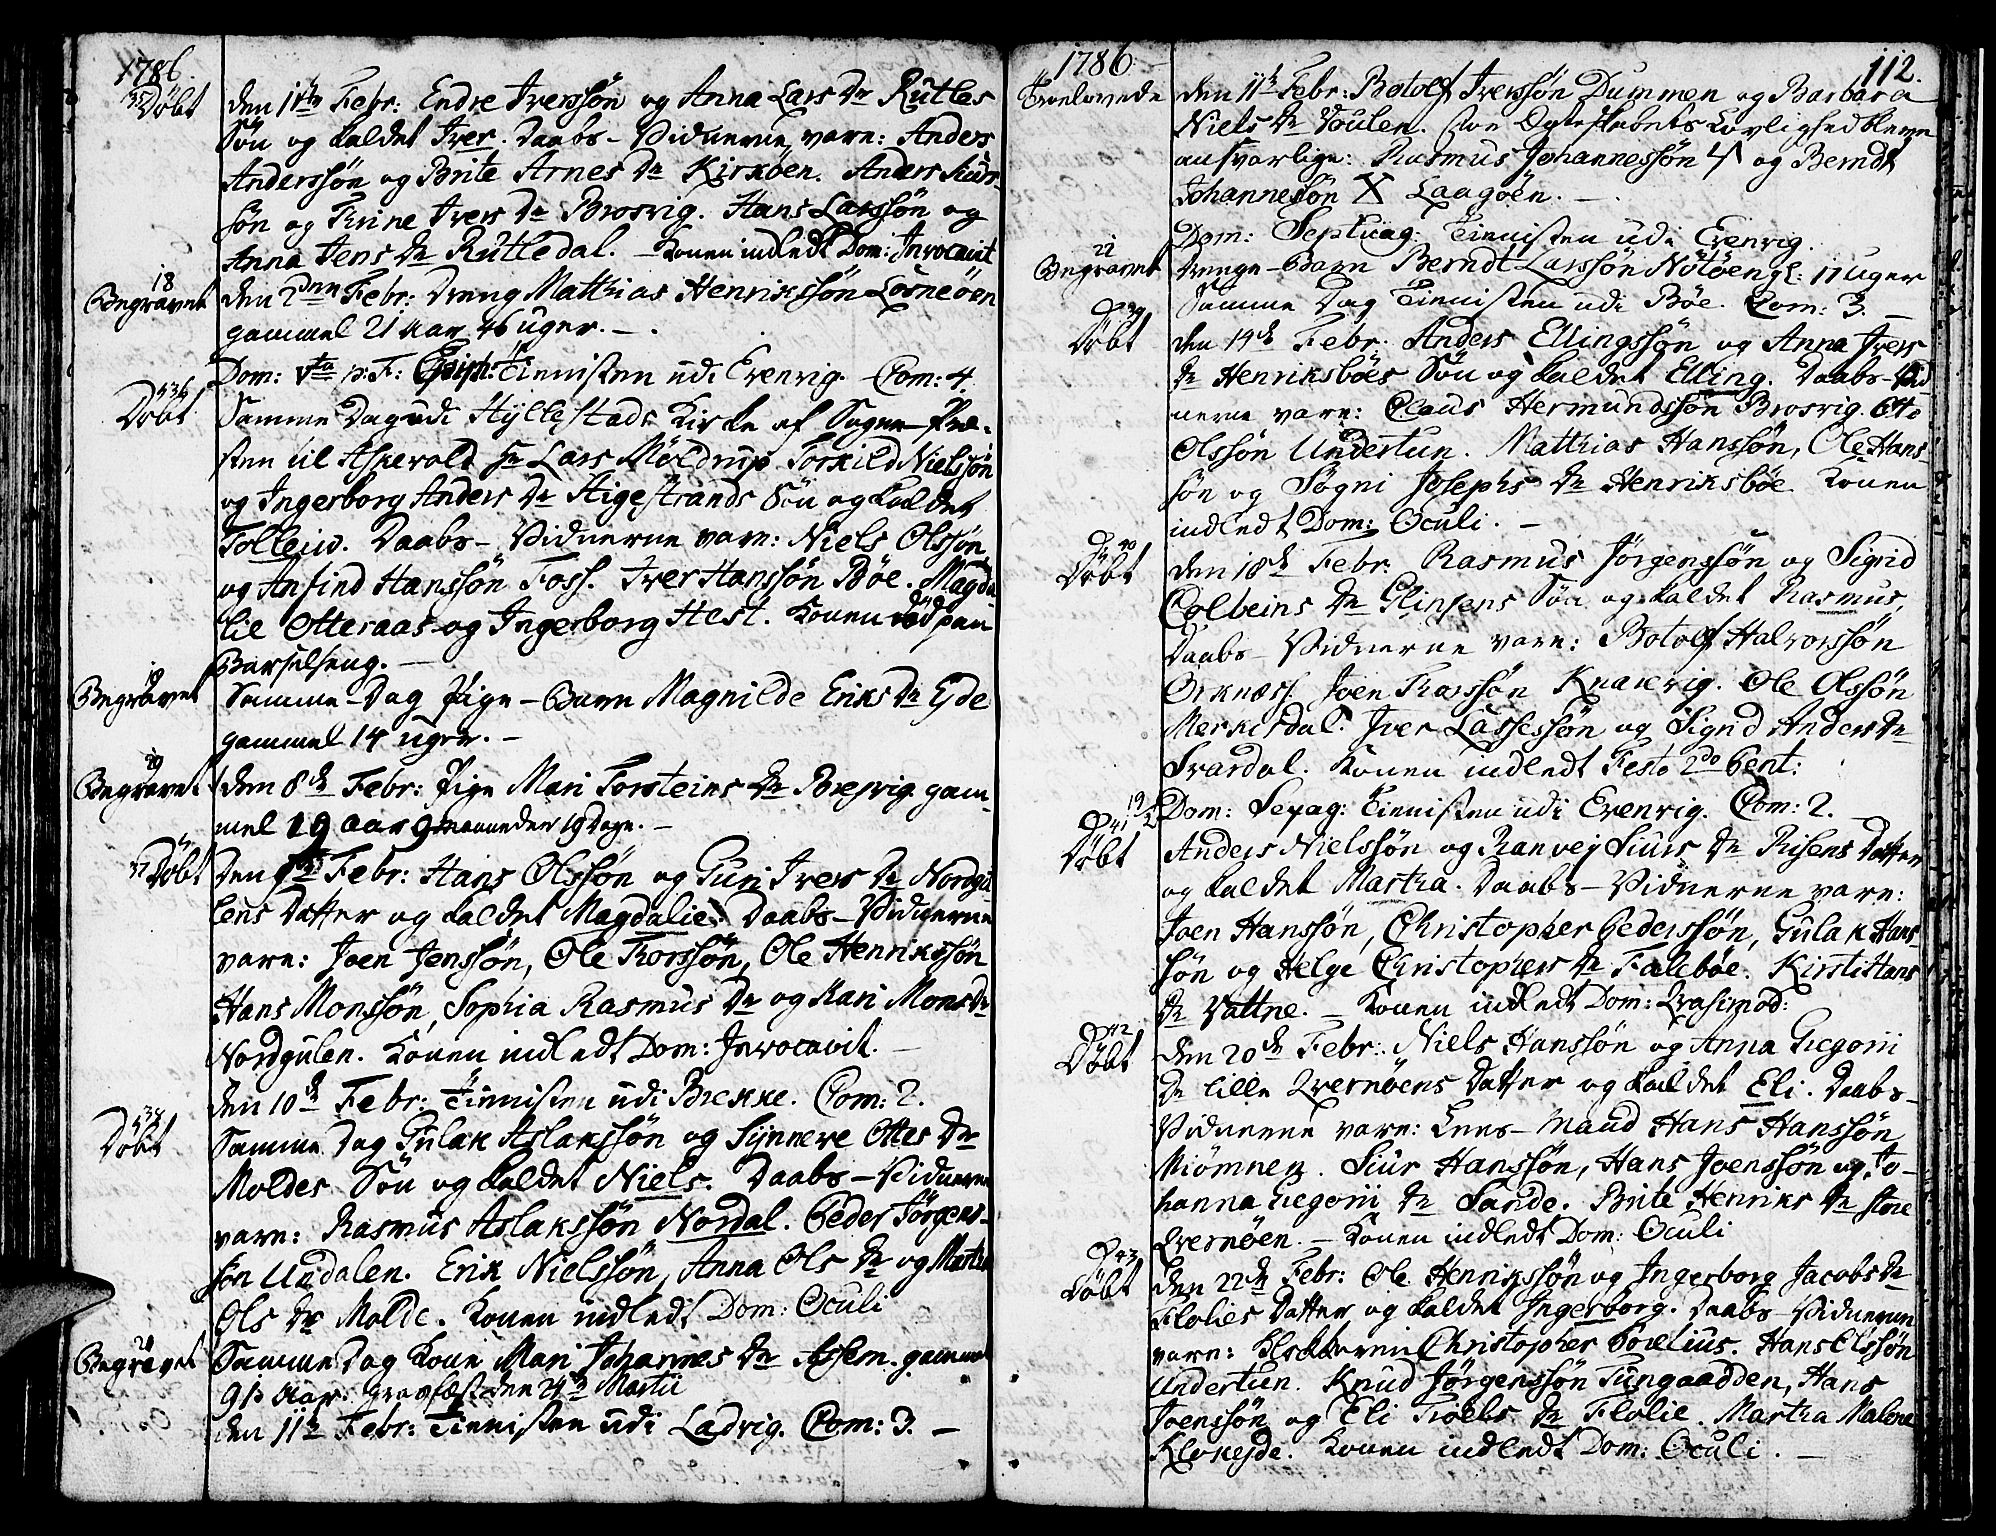 1786.
35 Døbt
den 1ste Febr: Endre Iverssøn og Anna Lars Dr Rutles
Søn og kaldet Iver. Daabs-Vidnerne vare: Anders
Anderssøn og Brite Arnes Dr Kirkøen. Anders
søn og Trine Ivers Dr Brosvig. Hans Larssøn og
Anna Jens Dr Rutledal. – Konen indledt Dom: Invocavit
18
Begravet
den 2den Febr: Dreng Matthias Henrikssøn Losneøen
gammel 21 Aar 46 uger. –
Dom: Vta p: F: Epiph: Tienisten udi Evenvig. Com: 4.
36
Døbt
Samme Dag udi Hyllestads Kirke af Sogne-Præ-
sten til Askevold Hr Lars Møldrup Torkild Nielssøn
og Ingerborg Anders Dr Staigestrands Søn og kaldet
Tolleiv. Daabs-Vidnerne vare: Niels Olssøn
og Anfind Hanssøn Foss. Iver Hanssøn Bøe. Magda-
lie Otteraas og Ingerborg Hest. Konen død paa
Barselseng. –
19
Begravet
Samme-Dag Pige-Barn Magnilde Eriks Dr Eyde
gammel 14 uger. –
Begravet
den 8de Febr: Pige Mari Torsteins Dr Brejvig gam-
mel 19 Aar 9 Maaneder 19 Dage. –
37 Døbt
Den Febr: Hans Olssøn og Guri Ivers Dr Nordgu
lens Datter og kaldet Magdalie. Daabs-Vidnerne
vare: Joen Jenssøn, Ole Thorssøn, Ole Henrikssøn
Hans Monssøn, Sophia Rasmus Dr og Kari Mons Dr
Nordgulen. Konen indledt Dom: Invocavit. –
den 10de Febr: Tienisten udi Brekke. Com: 2.
38
Døbt
Samme Dag Gulak Aslakssøn og Synneve Ottes Dr
Moldes Søn og kaldet Niels. Daabs-Vidnerne
vare: Rasmus Aslakssøn Nordal. Peder Jørgens-
søn Undalen. Erik Nielssøn, Anna Ols Dr og Martha
Ols Dr Molde. Konen indledt Dom: Oculi
Begravet
Samme Dag Kone Mari Johannes Dr Assem. gammel
91 Aar. Gravfæst den 24de Martii
den 11te Febr: Tienisten udi Ladvig. Com: 3. –
1786.
112.
Troelovede
den 11te Febr: Botolf Iverssøn Dummen og Barbara
Niels Dr. For Ægteskabets Lovlighed bleve
ansvarlige: Rasmus Johannessøn og Berndt
Johannessøn X Laagøen. –
Dom: Septuag: Tienisten udi Evenvig.
21
Begravet
Drenge-Barn Berndt Larssøn Nøtøeng: 17 uger
Samme Dag Tienisten udi Bøe. Com: 3. –
39
Døbt
den 14de Febr. Anders Ellingssøn og Anna Ivers
Dr Henriksbøes Søn og kaldet Elling. Daabs-Vid
nerne vare: Claus Hermundssøn Brosvig. Otto
Olssøn Undertun. Matthias Hanssøn, Ole Hans-
søn og Søgni Josephs Dr Henriksbøe. Konen
indledt Dom: Oculi. –
40
Døbt
den 18de Febr. Rasmus Jørgenssøn og Sigrid
Colbeins Dr Glinsens Søn og kaldet Rasmus.
Daabs-Vidnerne vare: Botolf Halvorssøn
Orknæss. Joen Thorssøn Knarrvig. Ole Olssøn
Merkesdal. Iver Lassessøn og Sigrid Anders Dr
Svardal. Konen indledt Festo 2do Pent:
Dom: Sexag: Tienisten udi Evenvig. Com: 2. –
41
Døbt
Anders Nielssøn og Ranvej Siurs Dr Risens Datter
og kaldet Martha. Daabs-Vidnerne vare:
Joen Hanssøn, Christopher Pederssøn, Gulak Hans-
søn og Helge Christophers Dr Falebøe. Kirsti Hans
Dr Vattne. – Konen indledt Dom: Qvasimod:
42
Døbt
den 20de Febr: Niels Hanssøn og Anna Gregorii
Dr lille Qvernøens Datter og kaldet Eli. Daabs-
Vidnerne vare: Lens-Mand Hans Hanssøn
Miømnen. Siur Hanssøn, Hans Joenssøn og Jo-
hanna Gregorii Dr Sande. Brite Henriks Dr store
Qvernøen. – Konen indledt Dom: Oculi
43
Døbt
den 22de Febr: Ole Henrikssøn og Ingerborg Jacobs Dr
Flolies Datter og kaldet Ingerborg. Daabs-Vidnerne
vare: Klokkeren Christopher Povelius. Hans Olssøn
Undertun. Knud Jørgenssøn Tungaadden, Hans
Joenssøn og Eli Troels Dr Flolie. Martha Malene
Klokejde. Konen indledt Dom: Oculi. –